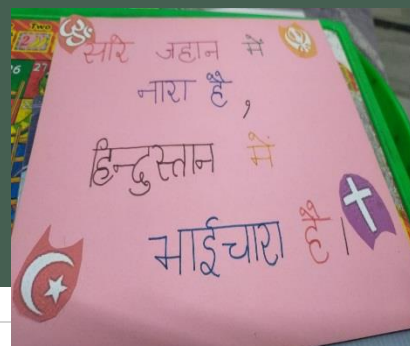 सारि जहान में
नारा है,
हिन्दुस्तान में
भाईचारा है।